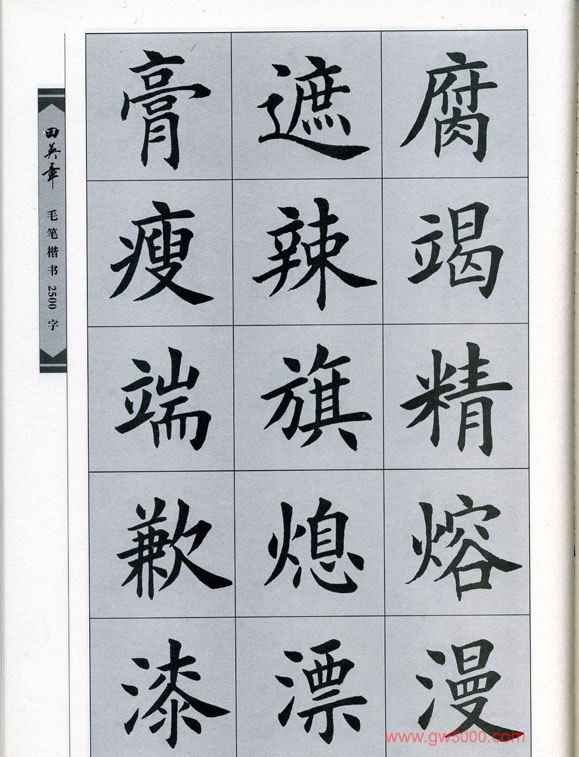 田英章 毛笔楷书 2500 字
膏 遮 腐
瘦 辣 竭
端 旗 精
歉 熄 熔
漆 漂 漫
www.gw5000.com